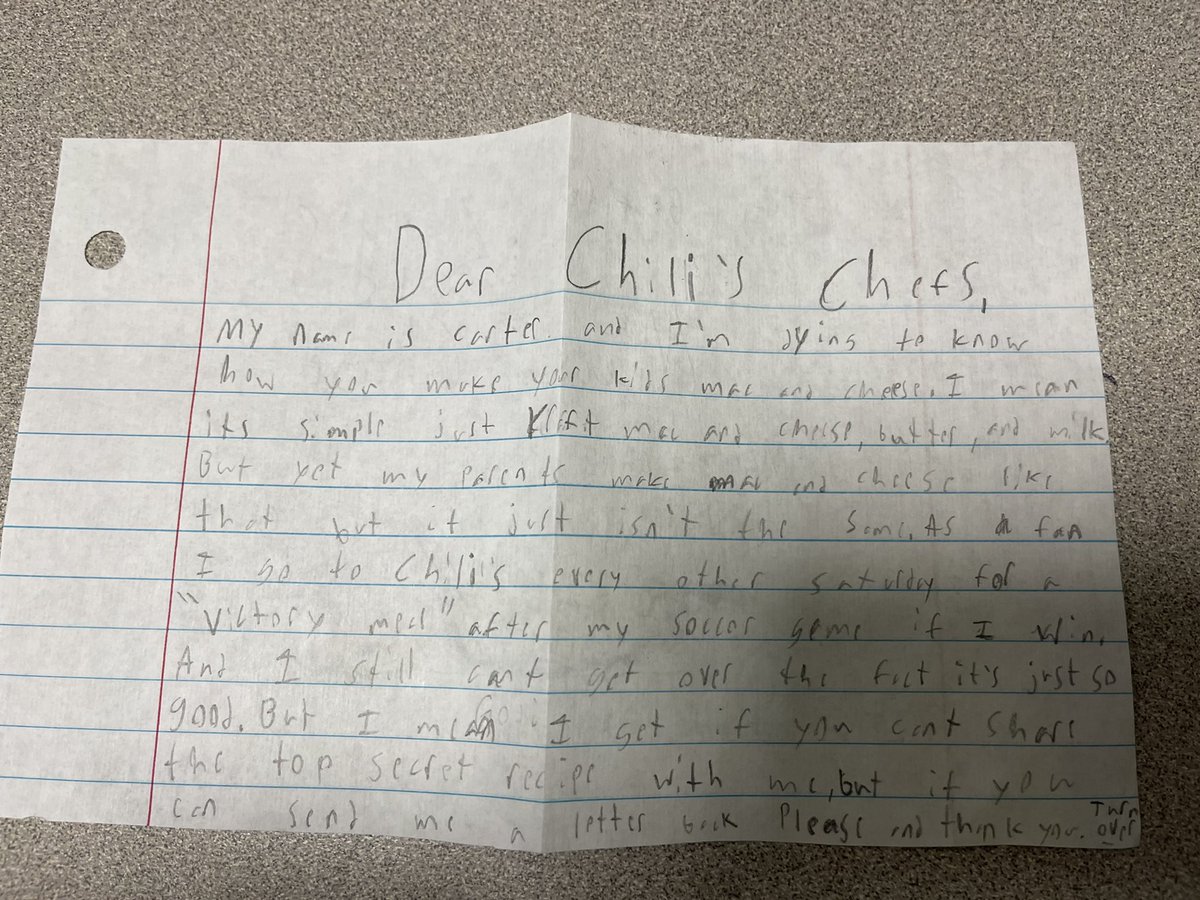 Dear Chili's Chefs,
My name is carter. and I'm dying to know
how you make your kids mac and cheese. I mean
its simple just Kraft mac and cheese, butter, and milk.
But yet my parents make mac and cheese like
that but it just isn't the same. As a fan
I go to Chili's every other saturday for a
"victory meal" after my soccer game if I win.
And I still can't get over the fact it's just so
good. But I mean I get if you cant share
the top secret recipe with me, but if you
can send me a letter back Please and thank you. Turn
over